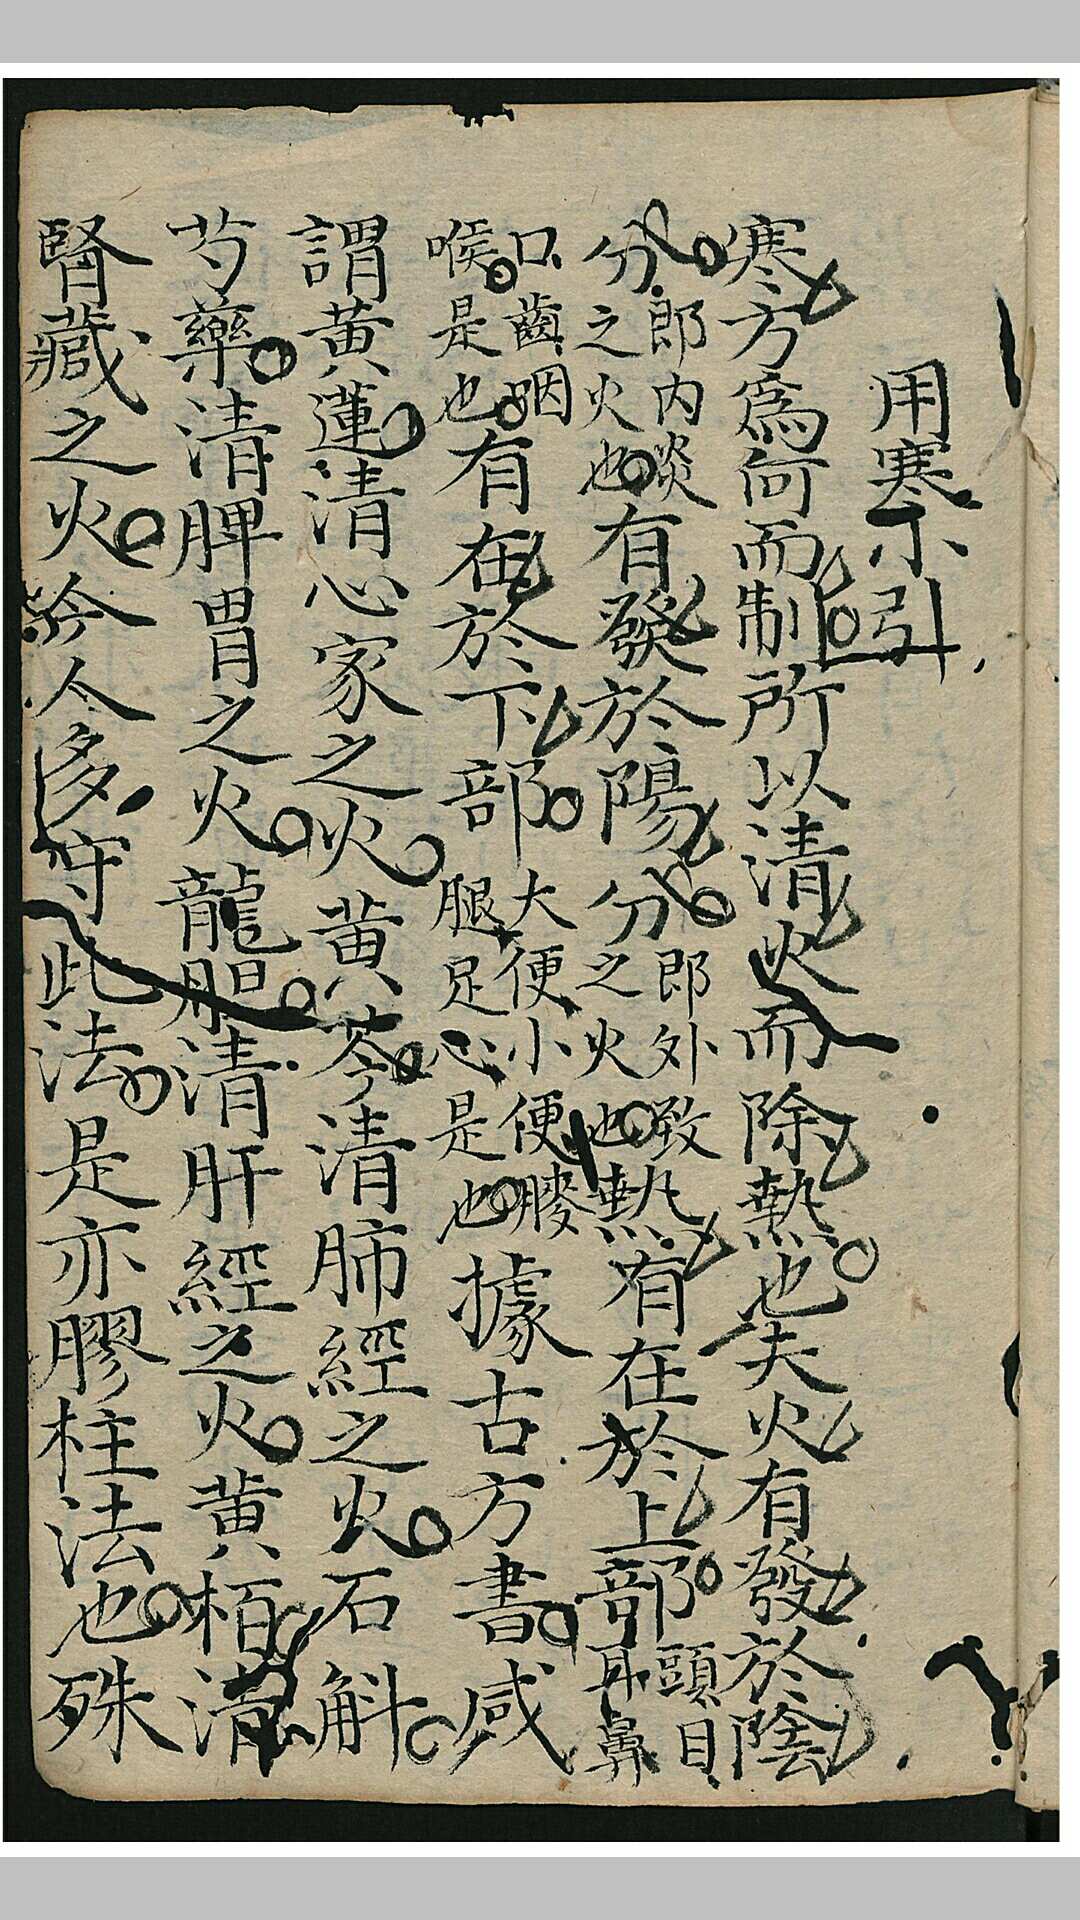 用寒小引
寒方為何而制所以清火而除熱也夫火有發於陰
分即内炎之火也有發於陽分即外致之火也熱有在於上部頭目耳鼻
口齒咽喉是也有在於下部大便小便膝腿足心是也據古方書咸
謂黃蓮清心家之火黃芩清肺經之火石斛
芍藥清脾胃之火龍胆清肝經之火黃栢清
腎藏之火今人多守此法是亦膠柱法也殊